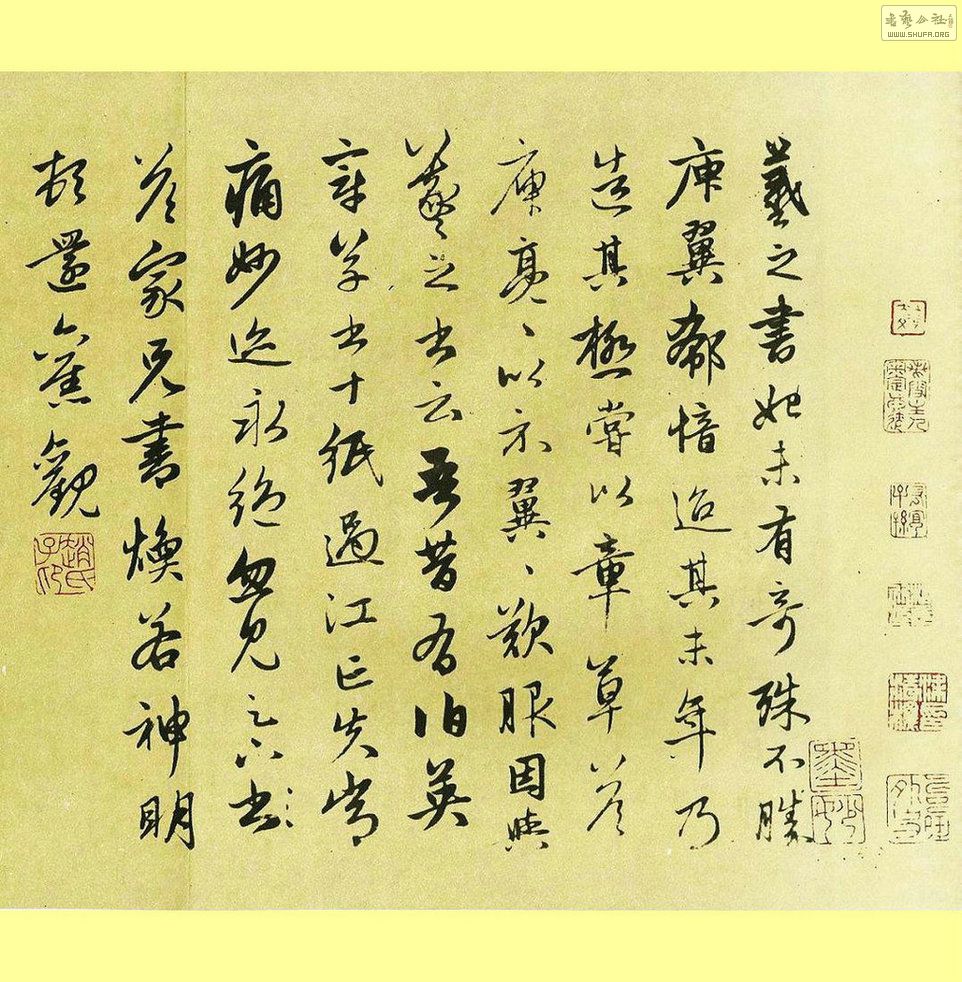 书艺公社
WWW.SHUFA.ORG
羲之書始未有奇殊不勝
庾翼郗愔迨其末年乃
造其極嘗以章草答
庾亮〻以示翼〻歎服因與
羲之書云吾昔有伯英
章草書十紙過江亡失常
痛妙迹永絕忽見足下書
答家兄書煥若神明
頓還舊觀
趙氏子昂